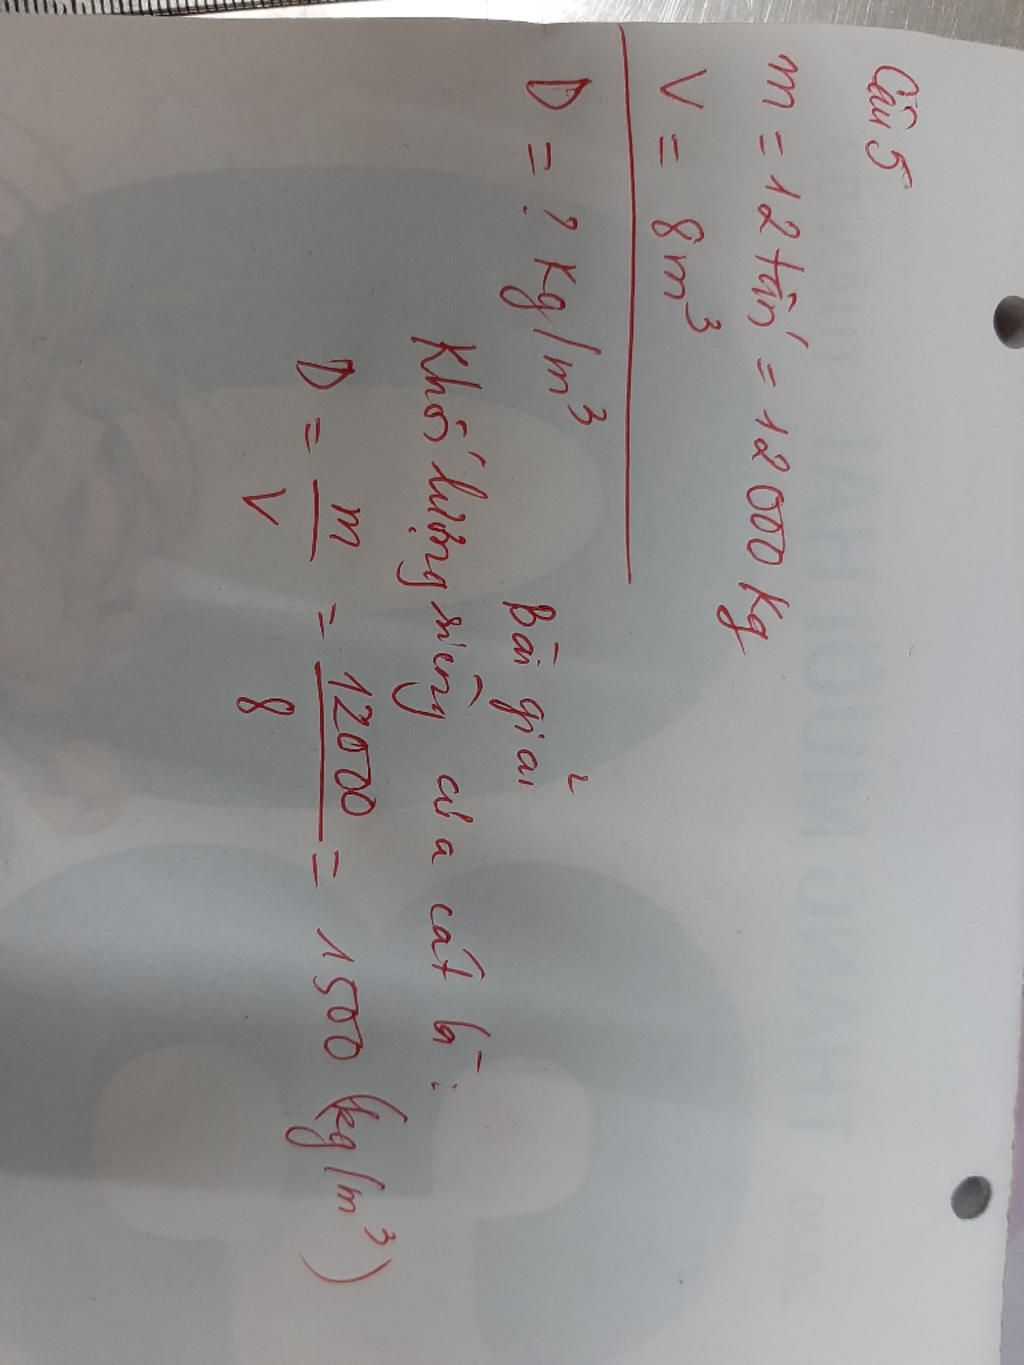 Câu 5
m = 12 tấn = 12000 kg
V = 8m³
D = ? kg/m³
Bài giải
Khối lượng riêng của cát là:
D = m/V = 12000/8 = 1500 (kg/m³)
THÁNG MƯỜI HAI
2020